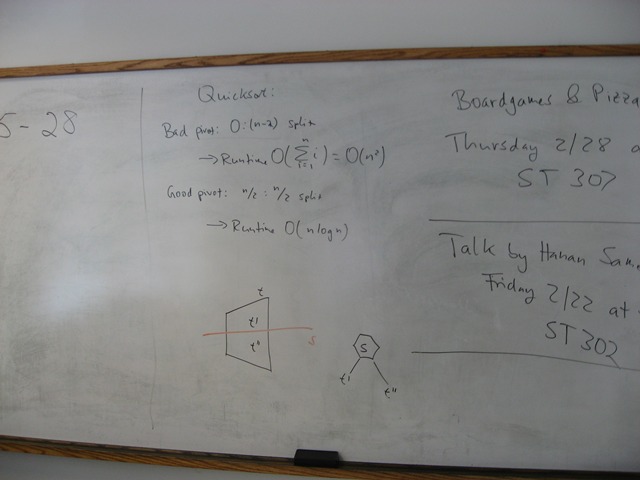 5-28
Quicksort:
Bad pivot: 0:(n-2) split
→ Runtime O(∑ᵢ₌₁ⁿ i) = O(n²)
Good pivot: n/2 : n/2 split
→ Runtime O(n log n)
t
t'
t"
s
S
t'
t"
Boardgames & Pizza
Thursday 2/28 a
ST 307
Talk by Hanan Sam
Friday 2/22 at
ST 302